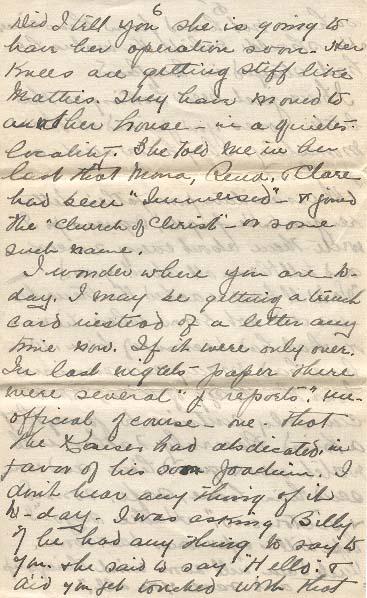 6
Did I tell you she is going to
have her operation soon. Her
Knees are getting stiff like
Matties. They have moved to
another house - in a quieter
locality. She told me in her
last that Mona, Rena, & Clare
had been "Immersed" - & joined
the "Church of Christ" - or some
such name.
I wonder where you are to-
day. I may be getting a trench
card instead of a letter any
time now. If it were only over.
In last nights paper there
were several "reports." un-
official of course - one that
the Kaiser had abdicated in
favor of his son Joachim. I
don't hear any thing of it
to-day. I was asking Billy
if he had any thing to say to
you. & he said to say "Hello. &
did you get touched with that